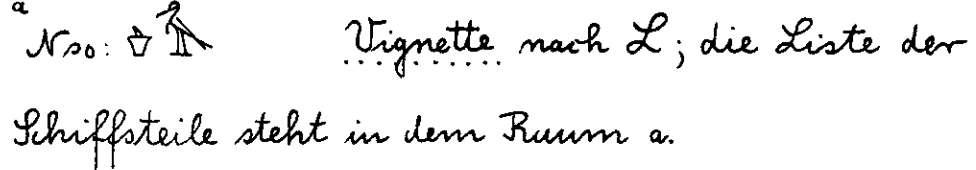 a Nso: Vignette nach L; die Liste der
Schiffsteile steht in dem Raum a.